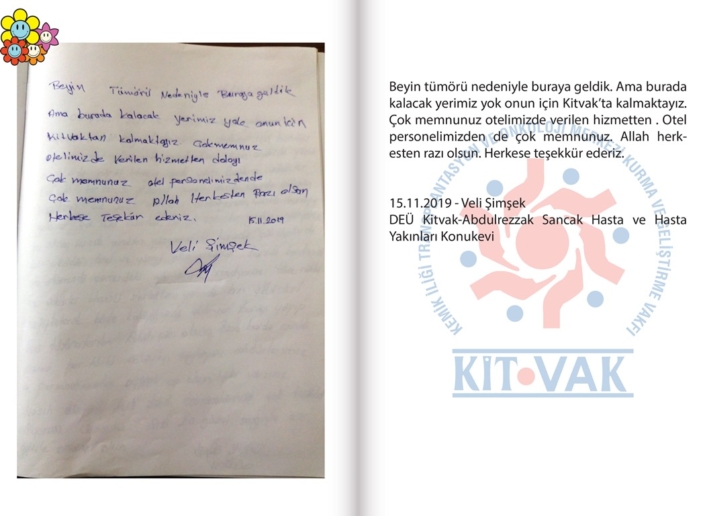 Beyin Tümörü Nedeniyle Buraya geldik
Ama burada kalacak yerimiz yok onun için
Kitvaktan kalmaktayız Çokmemnuz
otelimizde verilen hizmetten dolayı
Çok memnunuz otel personelimizdende
Çok memnunuz Allah Herkesten Razı olsun
Herkese Teşekür ederiz. 15.11.2019
Veli Şimşek
Beyin tümörü nedeniyle buraya geldik. Ama burada
kalacak yerimiz yok onun için Kitvak’ta kalmaktayız.
Çok memnunuz otelimizde verilen hizmetten . Otel
personelimizden de çok memnunuz. Allah herk-
esten razı olsun. Herkese teşekkür ederiz.
15.11.2019 - Veli Şimşek
DEÜ Kitvak-Abdulrezzak Sancak Hasta ve Hasta
Yakınları Konukevi
KEMİK İLİĞİ TRANSPLANTASYON VE ONKOLOJİ MERKEZİ KURMA VE GELİŞTİRME VAKFI
KİT VAK